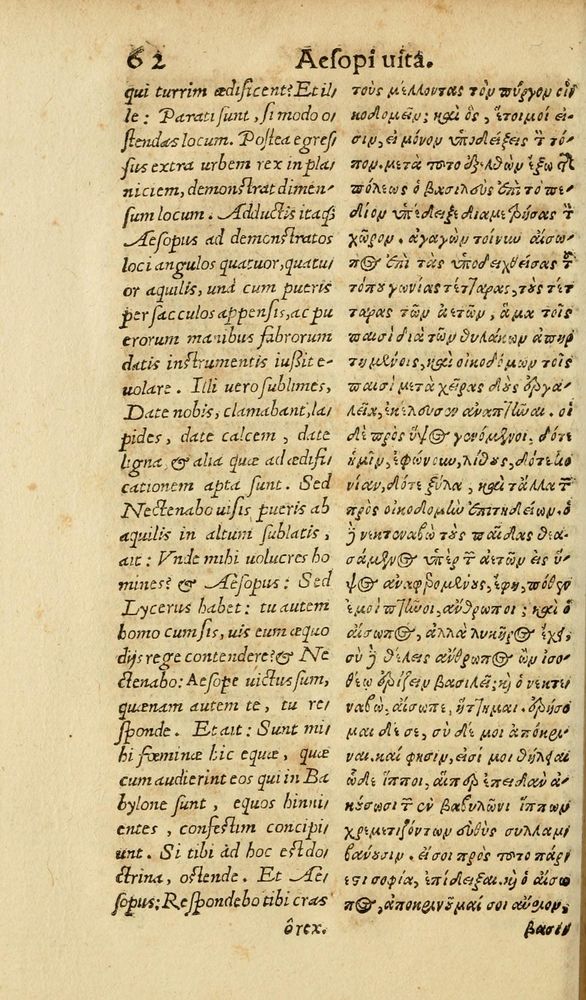 62 Aesopi uita.
qui turrim ædificent? Et il-
le: Parati sunt, si modo o-
stendas locum. Postea egres-
sus extra urbem rex in pla-
niciem, demonstrat dimen-
sum locum. Adductis itaq;
Aesopus ad demonstratos
loci angulos quatuor, quatu-
or aquilis, unà cum pueris
per sacculos appensis, ac pu
erorum manibus fabrorum
datis instrumentis iußit e-
uolare. Illi uero sublimes,
Date nobis, clamabant, la-
pides, date calcem, date
ligna, & alia quæ ad ædifi-
cationem apta sunt. Sed
Nectenabo uisis pueris ab
aquilis in altum sublatis,
ait: Vnde mihi uolucres ho
mines? & Aesopus: Sed
Lycerus habet: tu autem
homo cum sis, uis cum æquo
dijs rege contendere? & Ne
ctenabo: Aesope uictus sum,
quænam autem te, tu re-
sponde. Et ait: Sunt mi-
hi fœminæ hic equæ, quæ
cum audierint eos qui in Ba
bylone sunt, equos hinni-
entes, confestim concipi-
unt. Si tibi ad hoc est do-
ctrina, ostende. Et Ae-
sopus: Respondebo tibi cras
ô rex.
τοὺς μέλλοντας τὸν πύργον οἰ-
κοδομεῖν; καὶ ὃς, ἕτοιμοί εἰ-
σιν, εἰ μόνον ὑποδείξεις τὸν τό-
πον. μετὰ τοῦτο ἐξελθὼν ἔξω τῆς
πόλεως ὁ βασιλεὺς ἐπὶ τὸ πε-
δίον ὑπέδειξε διαμετρήσας τὸν
χῶρον. ἀγαγὼν τοίνυν αἴσω-
πος ἐπὶ τὰς ὑποδειχθείσας τοῦ
τόπου γωνίας τέτταρας, τοὺς τέτ-
ταρας τῶν ἀετῶν, ἅμα τοῖς
παισὶ διὰ τῶν θυλάκων ἀπηρ-
τημένοις, καὶ οἰκοδόμων τοῖς
παισὶ μετὰ χεῖρας δοὺς ἐργα-
λεῖα, ἐκέλευσεν ἀναπτῆναι. οἱ
δὲ πρὸς ὕψος γενόμενοι, δότε
ἡμῖν, ἐφώνουν, λίθους, δότε κο-
νίαν, δότε ξύλα, καὶ τἄλλα τῶν
πρὸς οἰκοδομὴν ἐπιτηδείων. ὁ
δὲ νεκτεναβὼ τοὺς παῖδας θεα-
σάμενος ὑπὸ τῶν ἀετῶν εἰς ὕ-
ψος ἀναφερομένους, ἔφη, πόθεν
ἐμοὶ πτηνοὶ ἄνθρωποι; καὶ ὁ
αἴσωπος, ἀλλὰ λυκῆρος ἔχει,
σὺ δὲ θέλεις ἄνθρωπος ὢν ἰσο-
θέῳ ἐρίζειν βασιλεῖ; καὶ ὁ νεκτε-
ναβὼ, αἴσωπε, ἥττημαι. ἐρήσο
μαι δέ σε, σὺ δέ μοι ἀπόκρι-
ναι. καί φησιν, εἰσί μοι θήλειαι
ὧδε ἵπποι, αἵπερ ἐπειδὰν ἀ-
κούσωσι τῶν ἐν βαβυλῶνι ἵππων
χρεμετιζόντων εὐθὺς συλλαμ-
βάνουσιν. εἴ σοι πρὸς τοῦτο πάρ-
εστι σοφία, ἐπίδειξαι. καὶ ὁ αἴσω-
πος, ἀποκρινοῦμαί σοι αὔριον,
βασιλ